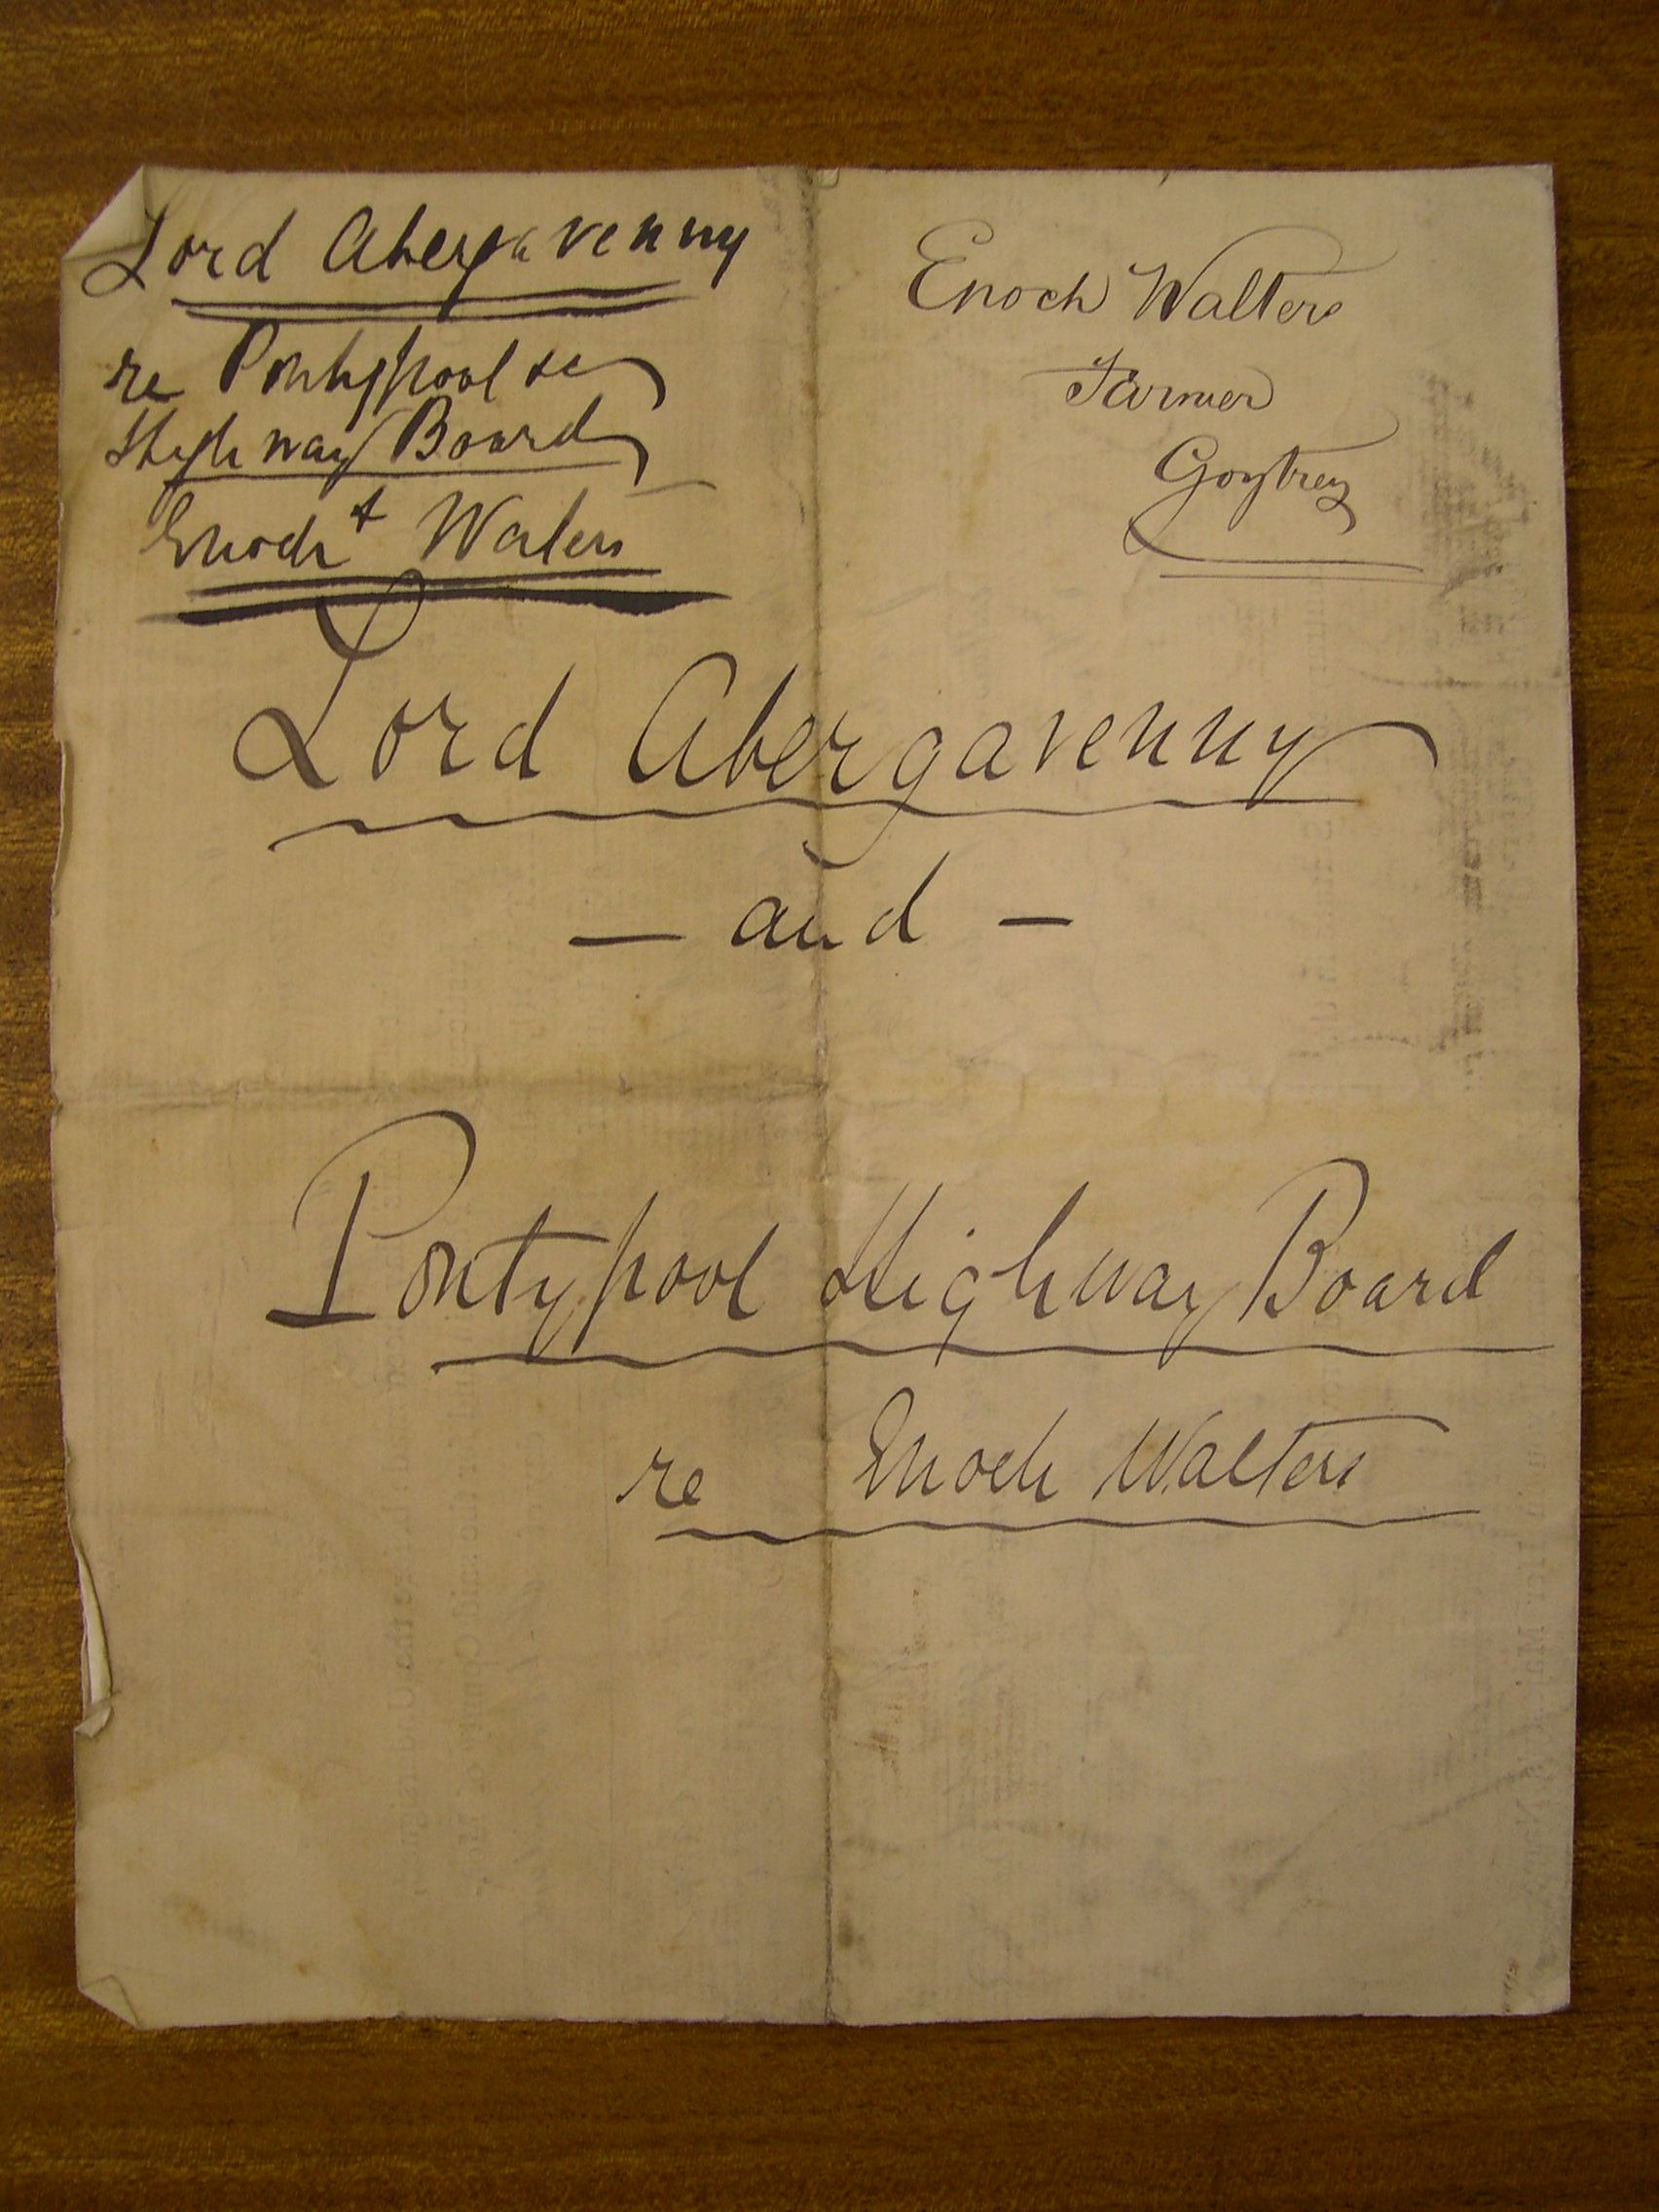 Lord Abergavenny
re Pontypool &c
Highway Board
&
Enoch Walters
Enoch Walters
Farmer
Goytrey
Lord Abergavenny
— and —
Pontypool Highway Board
re Enoch Walters